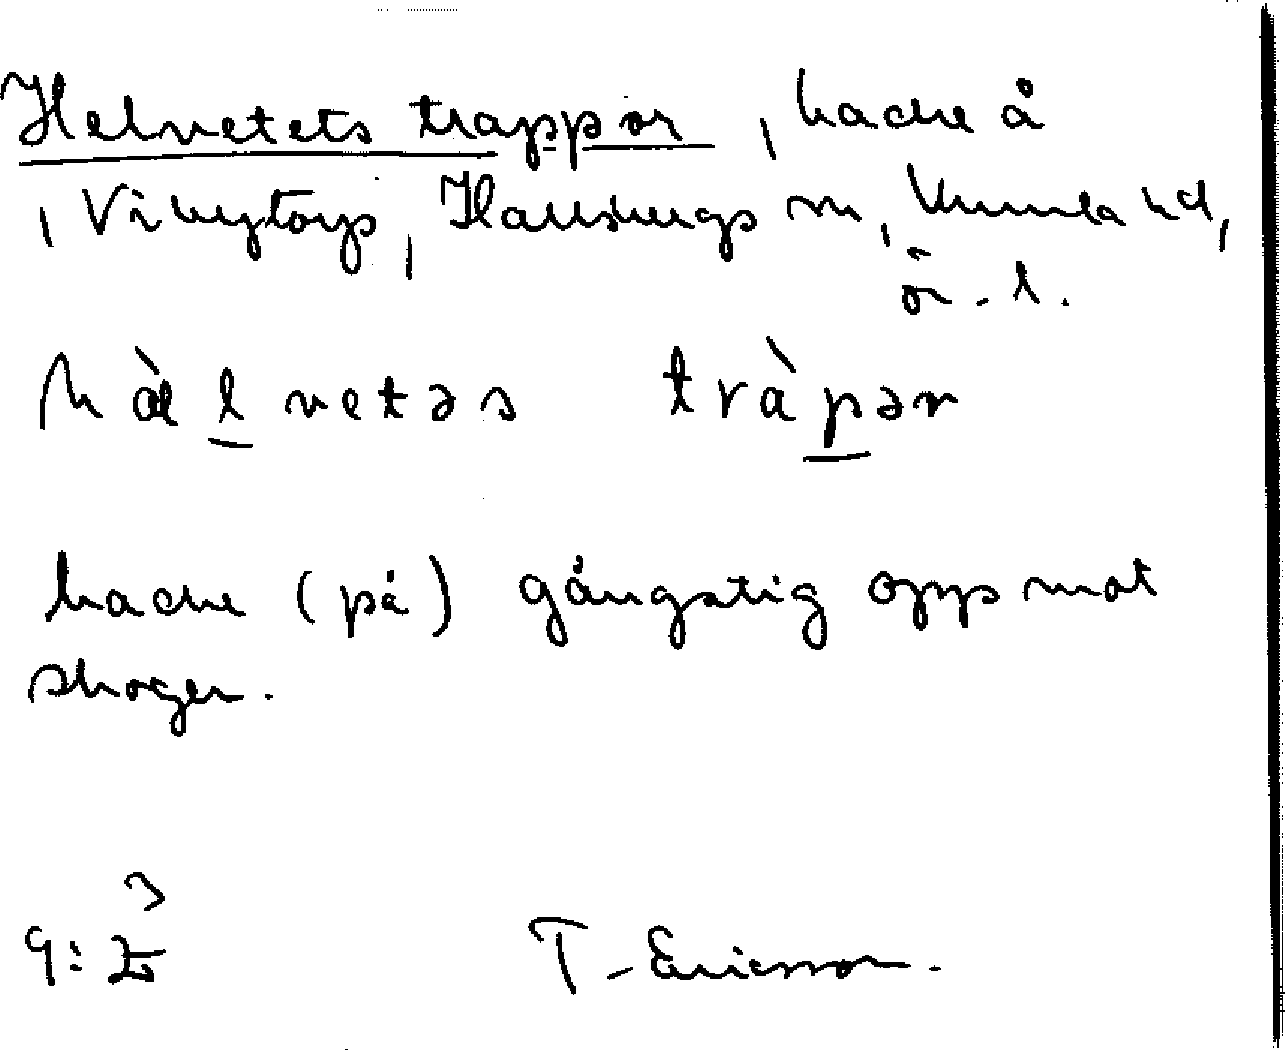 Helvetets trappor, backe å
, Vibytorp, Hallsbergs sn, Kumla hd,
ör. l.
hæ̀l̲vetəs tràp̲ər
backe (på) gångstig opp mot
skogen.
T. Ericsson.